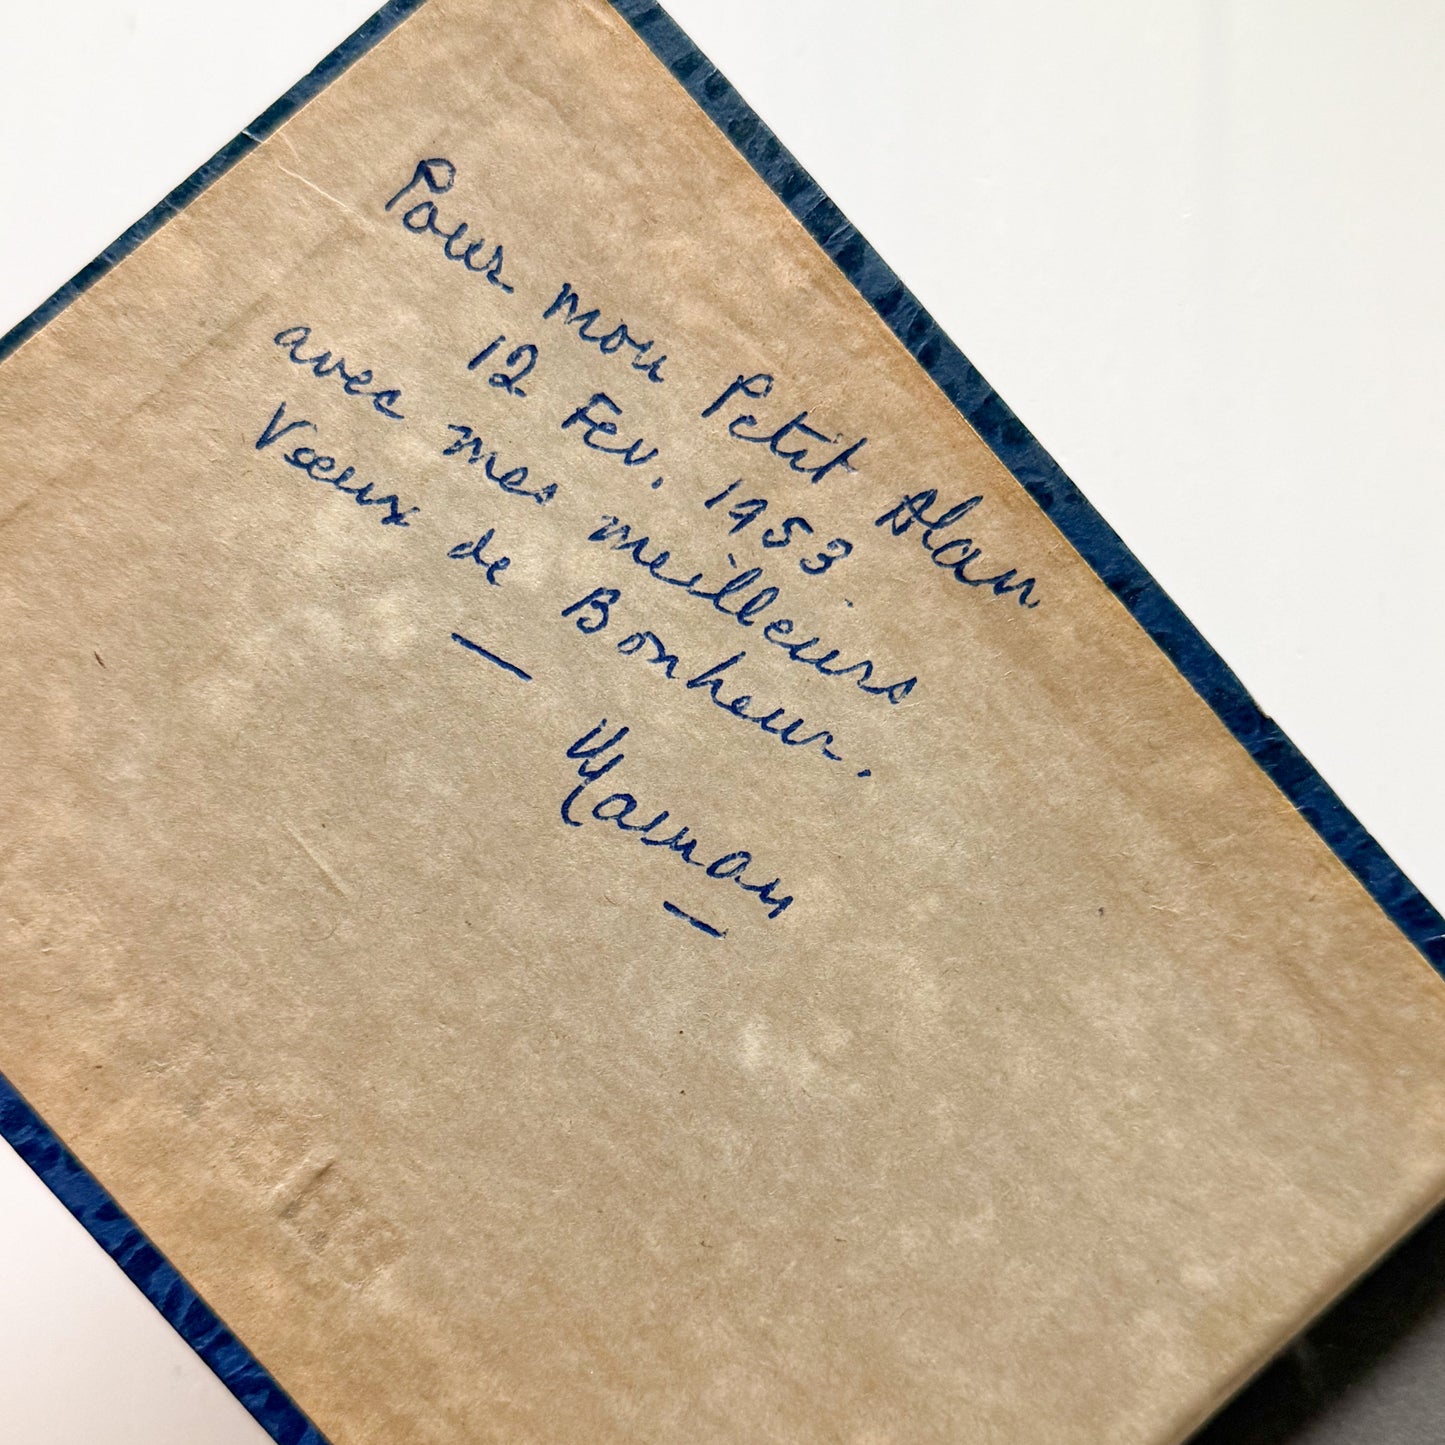 Pour mon Petit Alan
12 Fev. 1953
avec mes meilleurs
Vœux de Bonheur.
Maman